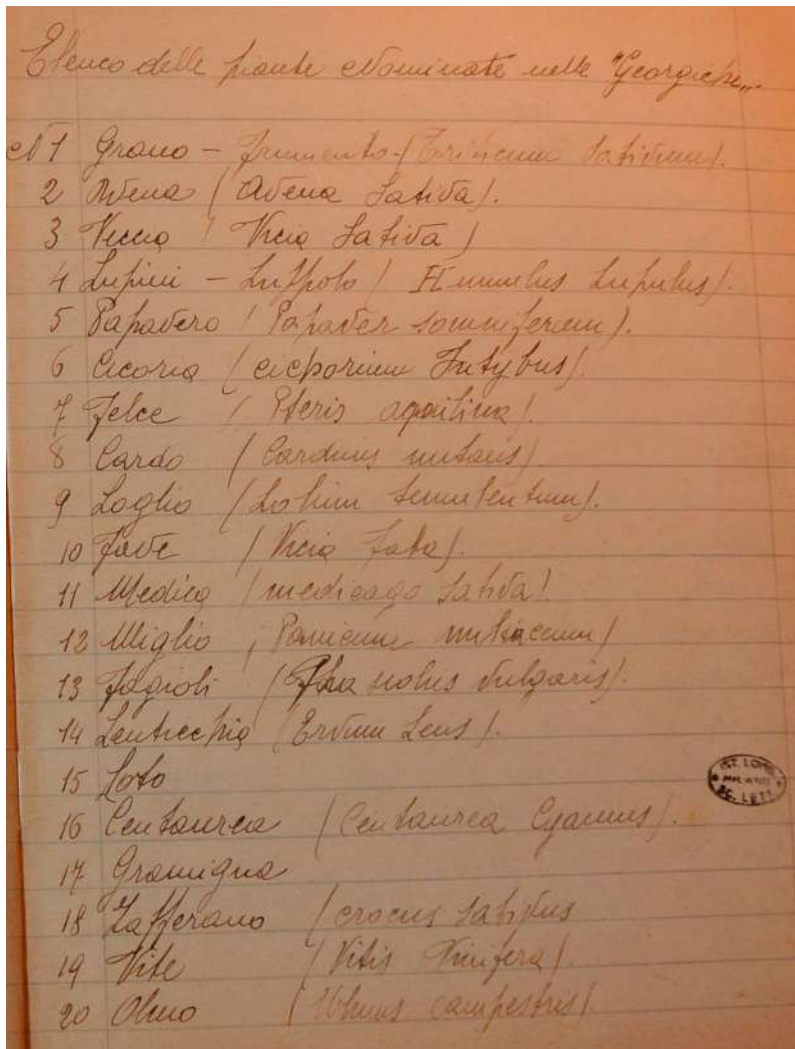 Elenco delle piante Nominate nelle "Georgiche„
N 1 Grano - frumento - (Triticum Sativum).
2 Avena (Avena Sativa).
3 Veccia (Vicia Sativa)
4 Lupini - Luppolo (Humulus Lupulus).
5 Papavero (Papaver somniferum).
6 Cicoria (cichorium Intybus).
7 Felce (Pteris aquilina).
8 Cardo (Carduus nutans).
9 Loglio (Lolium temulentum).
10 Fave (Vicia Faba).
11 Medica (medicago Sativa).
12 Miglio (Panicum miliaceum)
13 Fagioli (Phaseolus Vulgaris).
14 Lenticchia (Ervum Lens).
15 Loto
16 Centaurea (Centaurea Cyanus).
17 Gramigna
18 Zafferano (crocus sativus
19 Vite (Vitis Vinifera).
20 Olmo (Ulmus campestris).
IST. LOMB.
MILANO
SC. LETT.